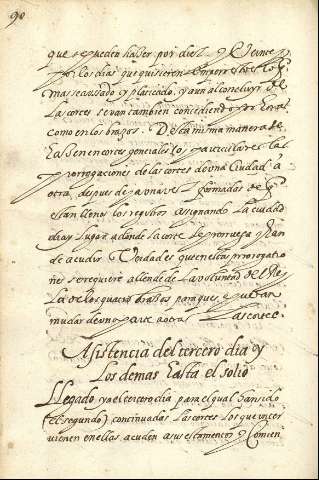 90
que se pueden haser por diesl. y veinte
y por los dias que quisieren empero esto es lo
mas usado y platicado, y aun al concluyr de
las cortes se van tambien concediendo por horas
como en los brazos. Desta misma manera se
hasen en cortes generales y particulares las
prorrogaciones de las cortes de una ciudad a
otra, despues de
estan llenos los registros asignando la ciudad
dia y lugar a donde la corte se prorruega y han
de acudir. Verdad es que en estas prorogatio
nes se requiere allende de la voluntad del Rey
la de los quatro brasos para que se puedan
mudar de una parte a otra las cortes.
Asistencia del tercero dia y
los demas hasta el solio
Llegado ya el tercero dia para el qual han sido
(el segundo) continuadas las cortes los que
vienen en ellas acuden a sus estamentos y comien